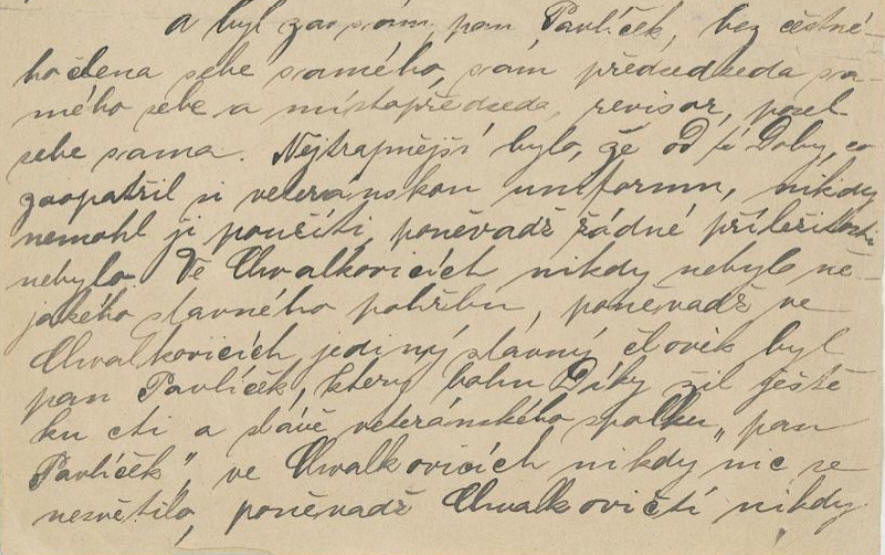 a byl zas sám, pan Pavlíček, bez čestné-
ho člena sebe samého, sám předsedseda sa-
mého sebe a místopředseda, revisor, posel
sebe sama. Nejtrapnější bylo, že od té Doby, co
zaopatřil si veteránskou uniformu, nikdy
nemohl ji použíti, poněvadž žádné příležitosti
nebylo. Ve Chvalkovicích nikdy nebylo ně-
jakého slavného pohřbu, poněvadž ve
Chvalkovicích jediný slavný člověk byl
pan Pavlíček, který bohu Díky žil ještě
ku cti a slávě veteránského spolku „pan
Pavlíček", ve Chvalkovicích nikdy nic se
nesvětilo, poněvadž Chvalkovičtí nikdy